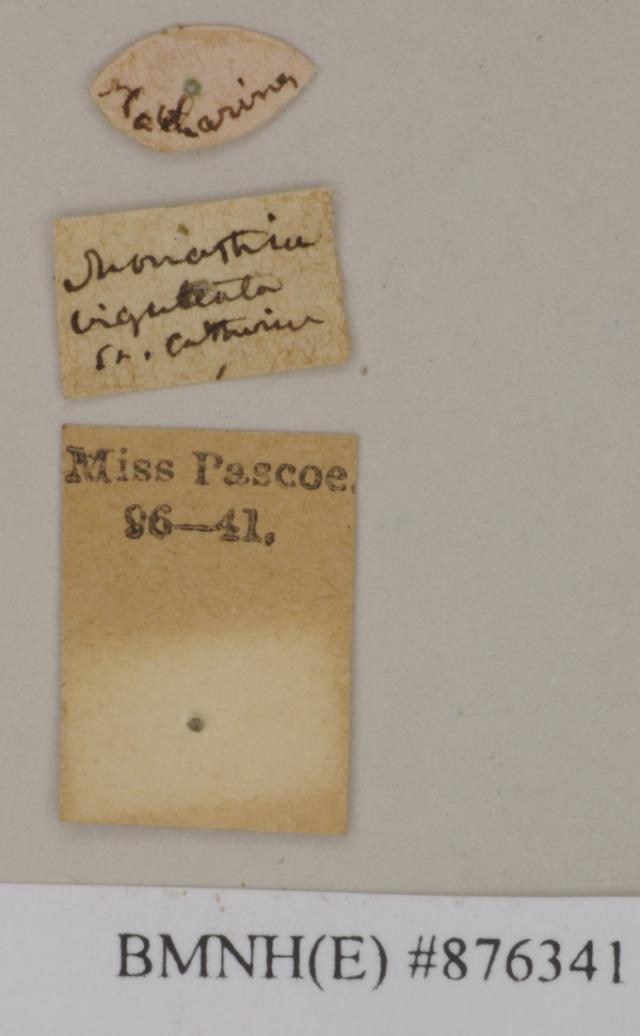 Catharina
Monastria
biguttata
Sn. Catharina
Miss Pascoe.
96—41.
BMNH(E) #876341